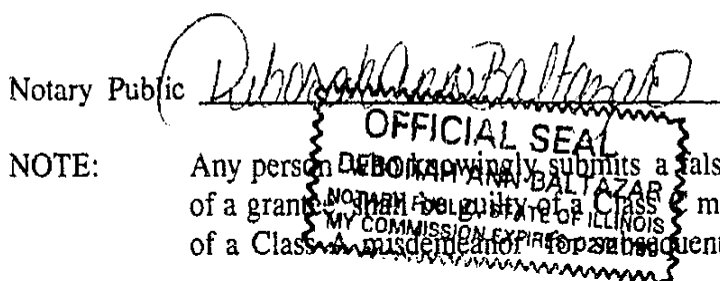 Notary Public Deborah Ann Baltazar
OFFICIAL SEAL
DEBORAH ANN BALTAZAR
NOTARY PUBLIC, STATE OF ILLINOIS
MY COMMISSION EXPIRES
NOTE: Any person who knowingly submits a fals
of a grantee shall be guilty of a Class C m
of a Class A misdemeanor for subsequent